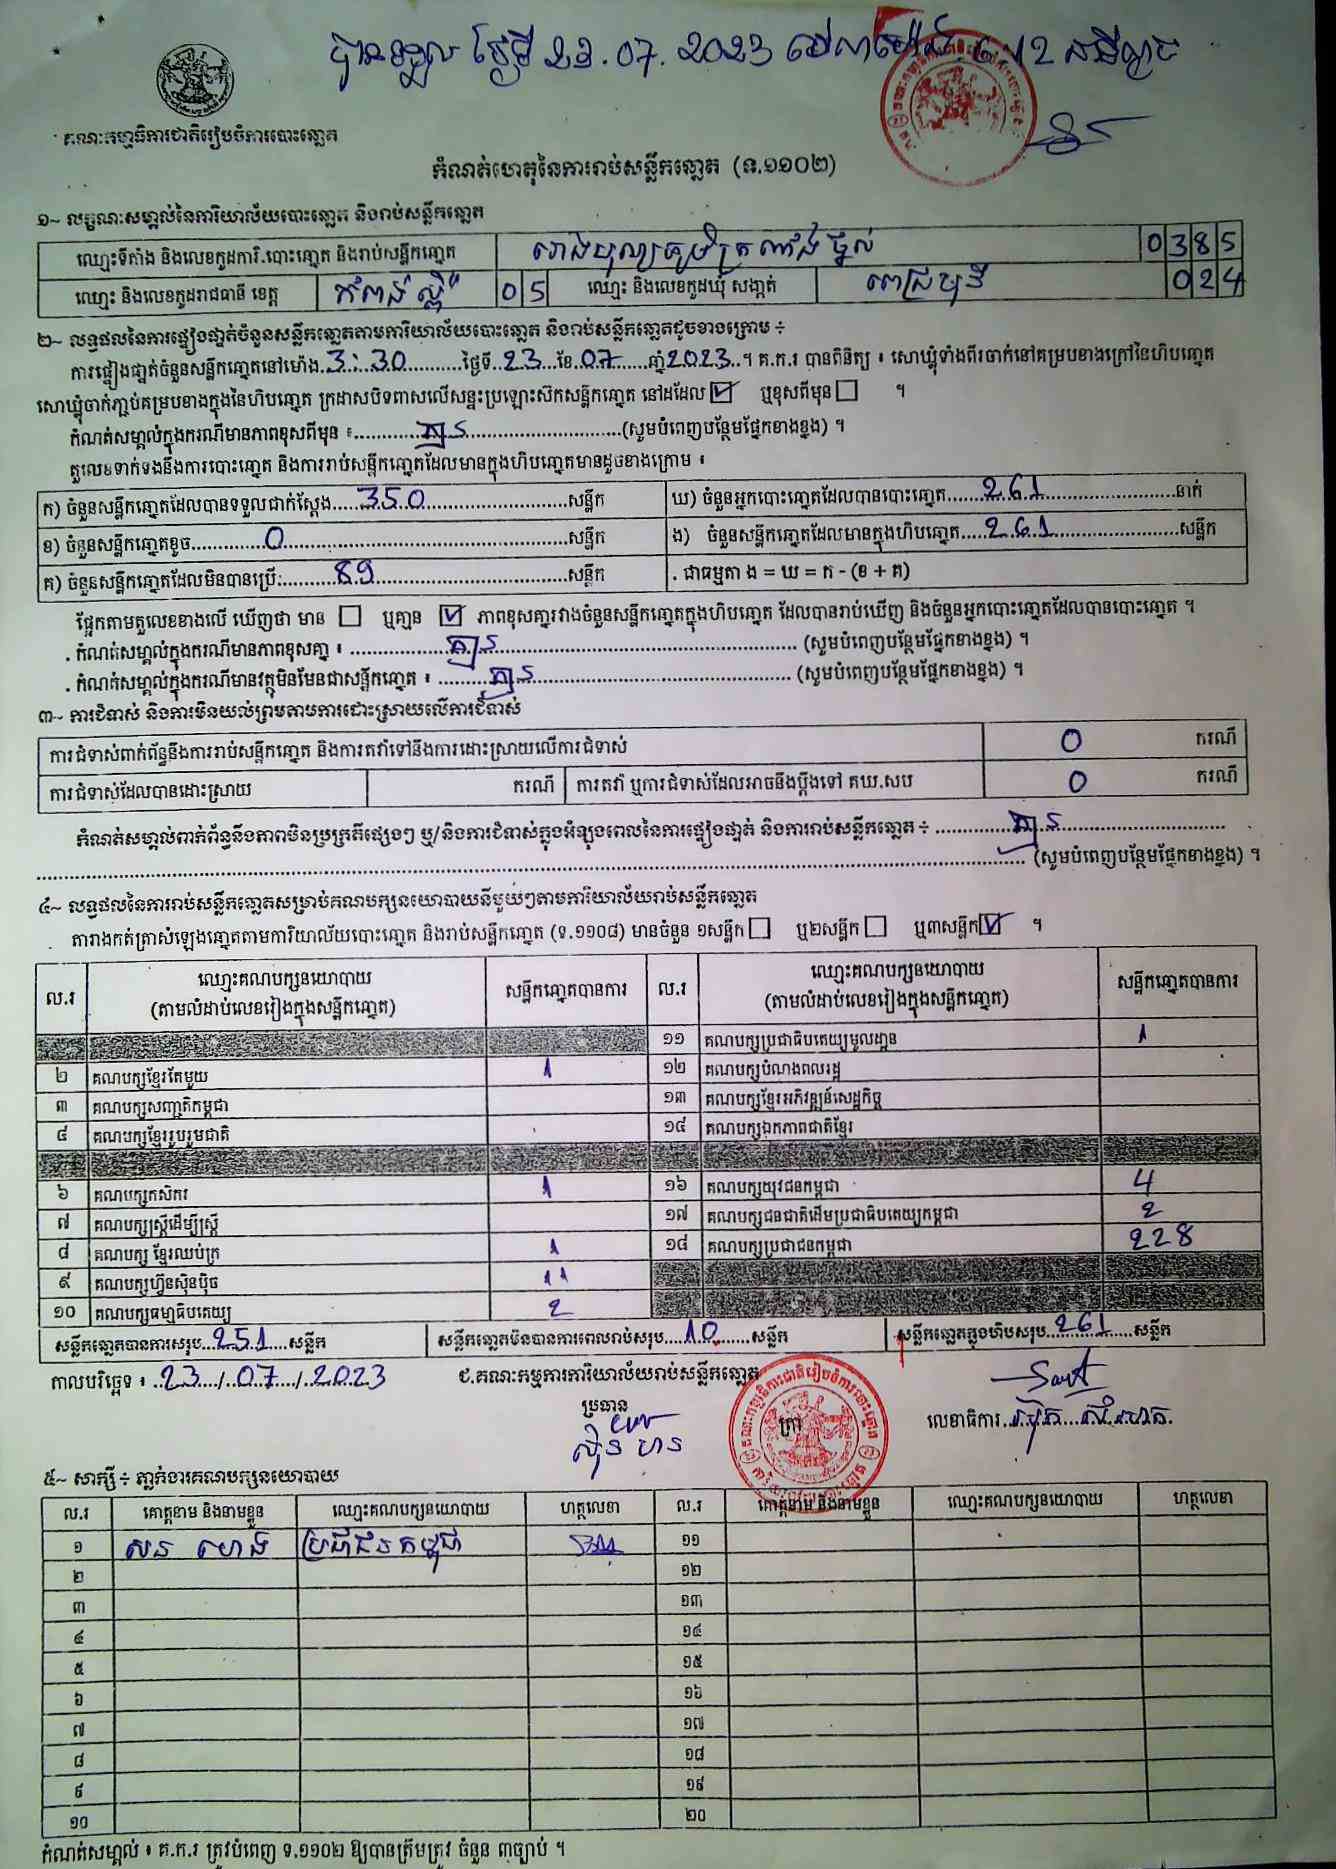 បានទទួល ថ្ងៃទី 23.07.2023 វេលាម៉ោង
គណៈកម្មាធិការជាតិរៀបចំការបោះឆ្នោត
កំណត់ហេតុនៃការរាប់សន្លឹកឆ្នោត (ទ.១១០២)
១~ លក្ខណៈសម្គាល់នៃការិយាល័យបោះឆ្នោត និងរាប់សន្លឹកឆ្នោត
ឈ្មោះទីតាំង និងលេខកូដការិ.បោះឆ្នោត និងរាប់សន្លឹកឆ្នោត 0385
ឈ្មោះ និងលេខកូដរាជធានី ខេត្ត កំពង់ស្ពឺ 05 ឈ្មោះ និងលេខកូដឃុំ សង្កាត់ ពេជ្រមុនី 024
២~ លទ្ធផលនៃការផ្ទៀងផ្ទាត់ចំនួនសន្លឹកឆ្នោតតាមការិយាល័យបោះឆ្នោត និងរាប់សន្លឹកឆ្នោតដូចខាងក្រោម ÷
ការផ្ទៀងផ្ទាត់ចំនួនសន្លឹកឆ្នោតនៅម៉ោង 3:30 ថ្ងៃទី 23 ខែ 07 ឆ្នាំ 2023 ។ គ.ក.រ បានពិនិត្យ ៖ សោឃ្លុំទាំងពីរចាក់នៅគម្របខាងក្រៅនៃហិបឆ្នោត
សោឃ្លុំចាក់ភ្ជាប់គម្របខាងក្នុងនៃហិបឆ្នោត ក្រដាសបិទពាសលើសន្ទះប្រឡោះស៊កសន្លឹកឆ្នោត នៅដដែល ☑ ឬខុសពីមុន ☐ ។
កំណត់សម្គាល់ក្នុងករណីមានភាពខុសពីមុន ៖ គ្មាន (សូមបំពេញបន្ថែមផ្នែកខាងខ្នង) ។
តួលេខទាក់ទងនឹងការបោះឆ្នោត និងការរាប់សន្លឹកឆ្នោតដែលមានក្នុងហិបឆ្នោតមានដូចខាងក្រោម ៖
ក) ចំនួនសន្លឹកឆ្នោតដែលបានទទួលជាក់ស្តែង 350 សន្លឹក ឃ) ចំនួនអ្នកបោះឆ្នោតដែលបានបោះឆ្នោត 261 នាក់
ខ) ចំនួនសន្លឹកឆ្នោតខូច 0 សន្លឹក ង) ចំនួនសន្លឹកឆ្នោតដែលមានក្នុងហិបឆ្នោត 261 សន្លឹក
គ) ចំនួនសន្លឹកឆ្នោតដែលមិនបានប្រើ 89 សន្លឹក . ជាធម្មតា ង = ឃ = ក - (ខ + គ)
ផ្អែកតាមតួលេខខាងលើ ឃើញថា មាន ☐ ឬគ្មាន ☑ ភាពខុសគ្នារវាងចំនួនសន្លឹកឆ្នោតក្នុងហិបឆ្នោត ដែលបានរាប់ឃើញ និងចំនួនអ្នកបោះឆ្នោតដែលបានបោះឆ្នោត ។
. កំណត់សម្គាល់ក្នុងករណីមានភាពខុសគ្នា ៖ គ្មាន (សូមបំពេញបន្ថែមផ្នែកខាងខ្នង) ។
. កំណត់សម្គាល់ក្នុងករណីមានវត្ថុមិនមែនជាសន្លឹកឆ្នោត ៖ គ្មាន (សូមបំពេញបន្ថែមផ្នែកខាងខ្នង) ។
៣~ ការជំទាស់ និងការមិនយល់ព្រមតាមការដោះស្រាយលើការជំទាស់
ការជំទាស់ពាក់ព័ន្ធនឹងការរាប់សន្លឹកឆ្នោត និងការតវ៉ាទៅនឹងការដោះស្រាយលើការជំទាស់ 0 ករណី
ការជំទាស់ដែលបានដោះស្រាយ ករណី ការតវ៉ា ឬការជំទាស់ដែលអាចនឹងប្តឹងទៅ គឃ.សប 0 ករណី
កំណត់សម្គាល់ពាក់ព័ន្ធនឹងភាពមិនប្រក្រតីផ្សេងៗ ឬ/និងការជំទាស់ក្នុងអំឡុងពេលនៃការផ្ទៀងផ្ទាត់ និងការរាប់សន្លឹកឆ្នោត ÷ គ្មាន
(សូមបំពេញបន្ថែមផ្នែកខាងខ្នង) ។
៤~ លទ្ធផលនៃការរាប់សន្លឹកឆ្នោតសម្រាប់គណបក្សនយោបាយនីមួយៗតាមការិយាល័យរាប់សន្លឹកឆ្នោត
តារាងកត់ត្រាសំឡេងឆ្នោតតាមការិយាល័យបោះឆ្នោត និងរាប់សន្លឹកឆ្នោត (ទ.១១០៨) មានចំនួន ១សន្លឹក ☐ ឬ២សន្លឹក ☐ ឬ៣សន្លឹក ☑ ។
ល.រ ឈ្មោះគណបក្សនយោបាយ (តាមលំដាប់លេខរៀងក្នុងសន្លឹកឆ្នោត) សន្លឹកឆ្នោតបានការ ល.រ ឈ្មោះគណបក្សនយោបាយ (តាមលំដាប់លេខរៀងក្នុងសន្លឹកឆ្នោត) សន្លឹកឆ្នោតបានការ
១១ គណបក្សប្រជាធិបតេយ្យមូលដ្ឋាន 1
២ គណបក្សខ្មែរតែមួយ 1 ១២ គណបក្សបំណងពលរដ្ឋ
៣ គណបក្សសញ្ជាតិកម្ពុជា ១៣ គណបក្សខ្មែរអភិវឌ្ឍន៍សេដ្ឋកិច្ច
៤ គណបក្សខ្មែររួបរួមជាតិ ១៤ គណបក្សឯកភាពជាតិខ្មែរ
៦ គណបក្សកសិករ 1 ១៦ គណបក្សយុវជនកម្ពុជា 4
៧ គណបក្សស្ត្រីដើម្បីស្ត្រី ១៧ គណបក្សជនជាតិដើមប្រជាធិបតេយ្យកម្ពុជា 2
៨ គណបក្ស ខ្មែរឈប់ក្រ 1 ១៨ គណបក្សប្រជាជនកម្ពុជា 228
៩ គណបក្សហ្វ៊ុនស៊ិនប៉ិច 11
១០ គណបក្សធម្មាធិបតេយ្យ 2
សន្លឹកឆ្នោតបានការសរុប 251 សន្លឹក សន្លឹកឆ្នោតមិនបានការពេលរាប់សរុប 10 សន្លឹក សន្លឹកឆ្នោតក្នុងហិបសរុប 261 សន្លឹក
កាលបរិច្ឆេទ ៖ 23/07/2023 ជ.គណៈកម្មការការិយាល័យរាប់សន្លឹកឆ្នោត
ប្រធាន ត្រា លេខាធិការ
ស៊ិន ហន
៥~ សាក្សី ÷ ភ្នាក់ងារគណបក្សនយោបាយ
ល.រ គោត្តនាម និងនាមខ្លួន ឈ្មោះគណបក្សនយោបាយ ហត្ថលេខា ល.រ គោត្តនាម និងនាមខ្លួន ឈ្មោះគណបក្សនយោបាយ ហត្ថលេខា
១ សន ហេង ប្រជាជនកម្ពុជា ១១
២ ១២
៣ ១៣
៤ ១៤
៥ ១៥
៦ ១៦
៧ ១៧
៨ ១៨
៩ ១៩
១០ ២០
កំណត់សម្គាល់ ៖ គ.ក.រ ត្រូវបំពេញ ទ.១១០២ ឱ្យបានត្រឹមត្រូវ ចំនួន ៣ច្បាប់ ។